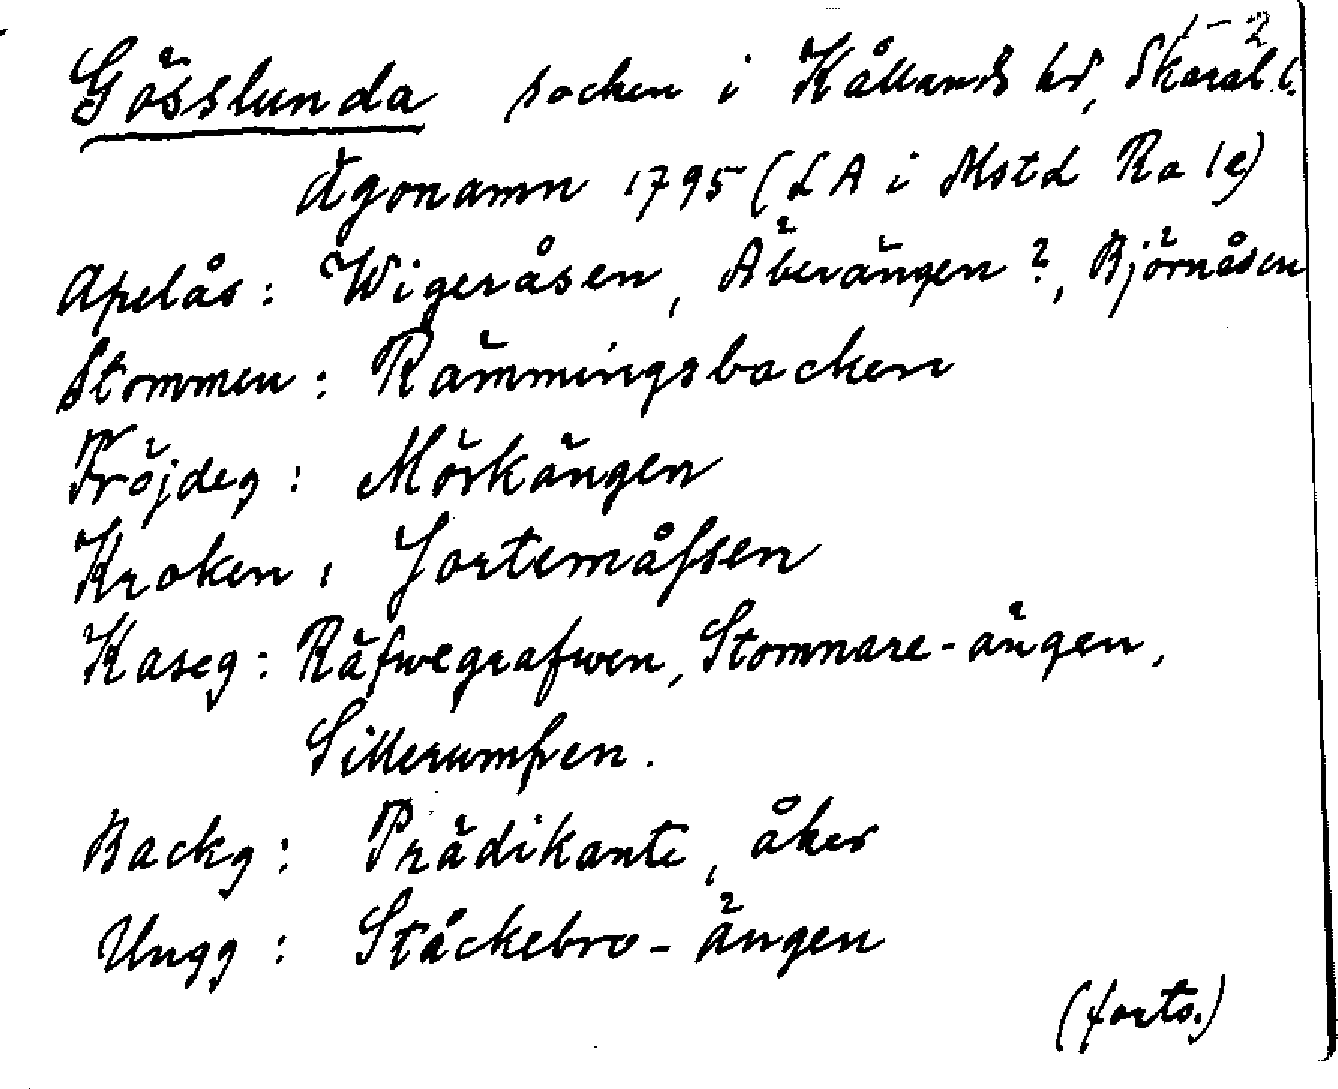 1-2
Gösslunda socken i Kållands hd, Skarab. l.
Ägonamn 1795 (LA i Mstd Ra 1e)
Apelås: Wigeråsen, Äberängen?, Björnåsen
Stommen: Rämmingsbacken
Fröjdeg: Mörkängen
Kroken: Jortemåssen
Kaseg: Räfwegrafwen, Stomnare-ängen,
Sillerumpen.
Backg: Prädikante, åker
Ungg: Ståckebro-ängen
(forts.)